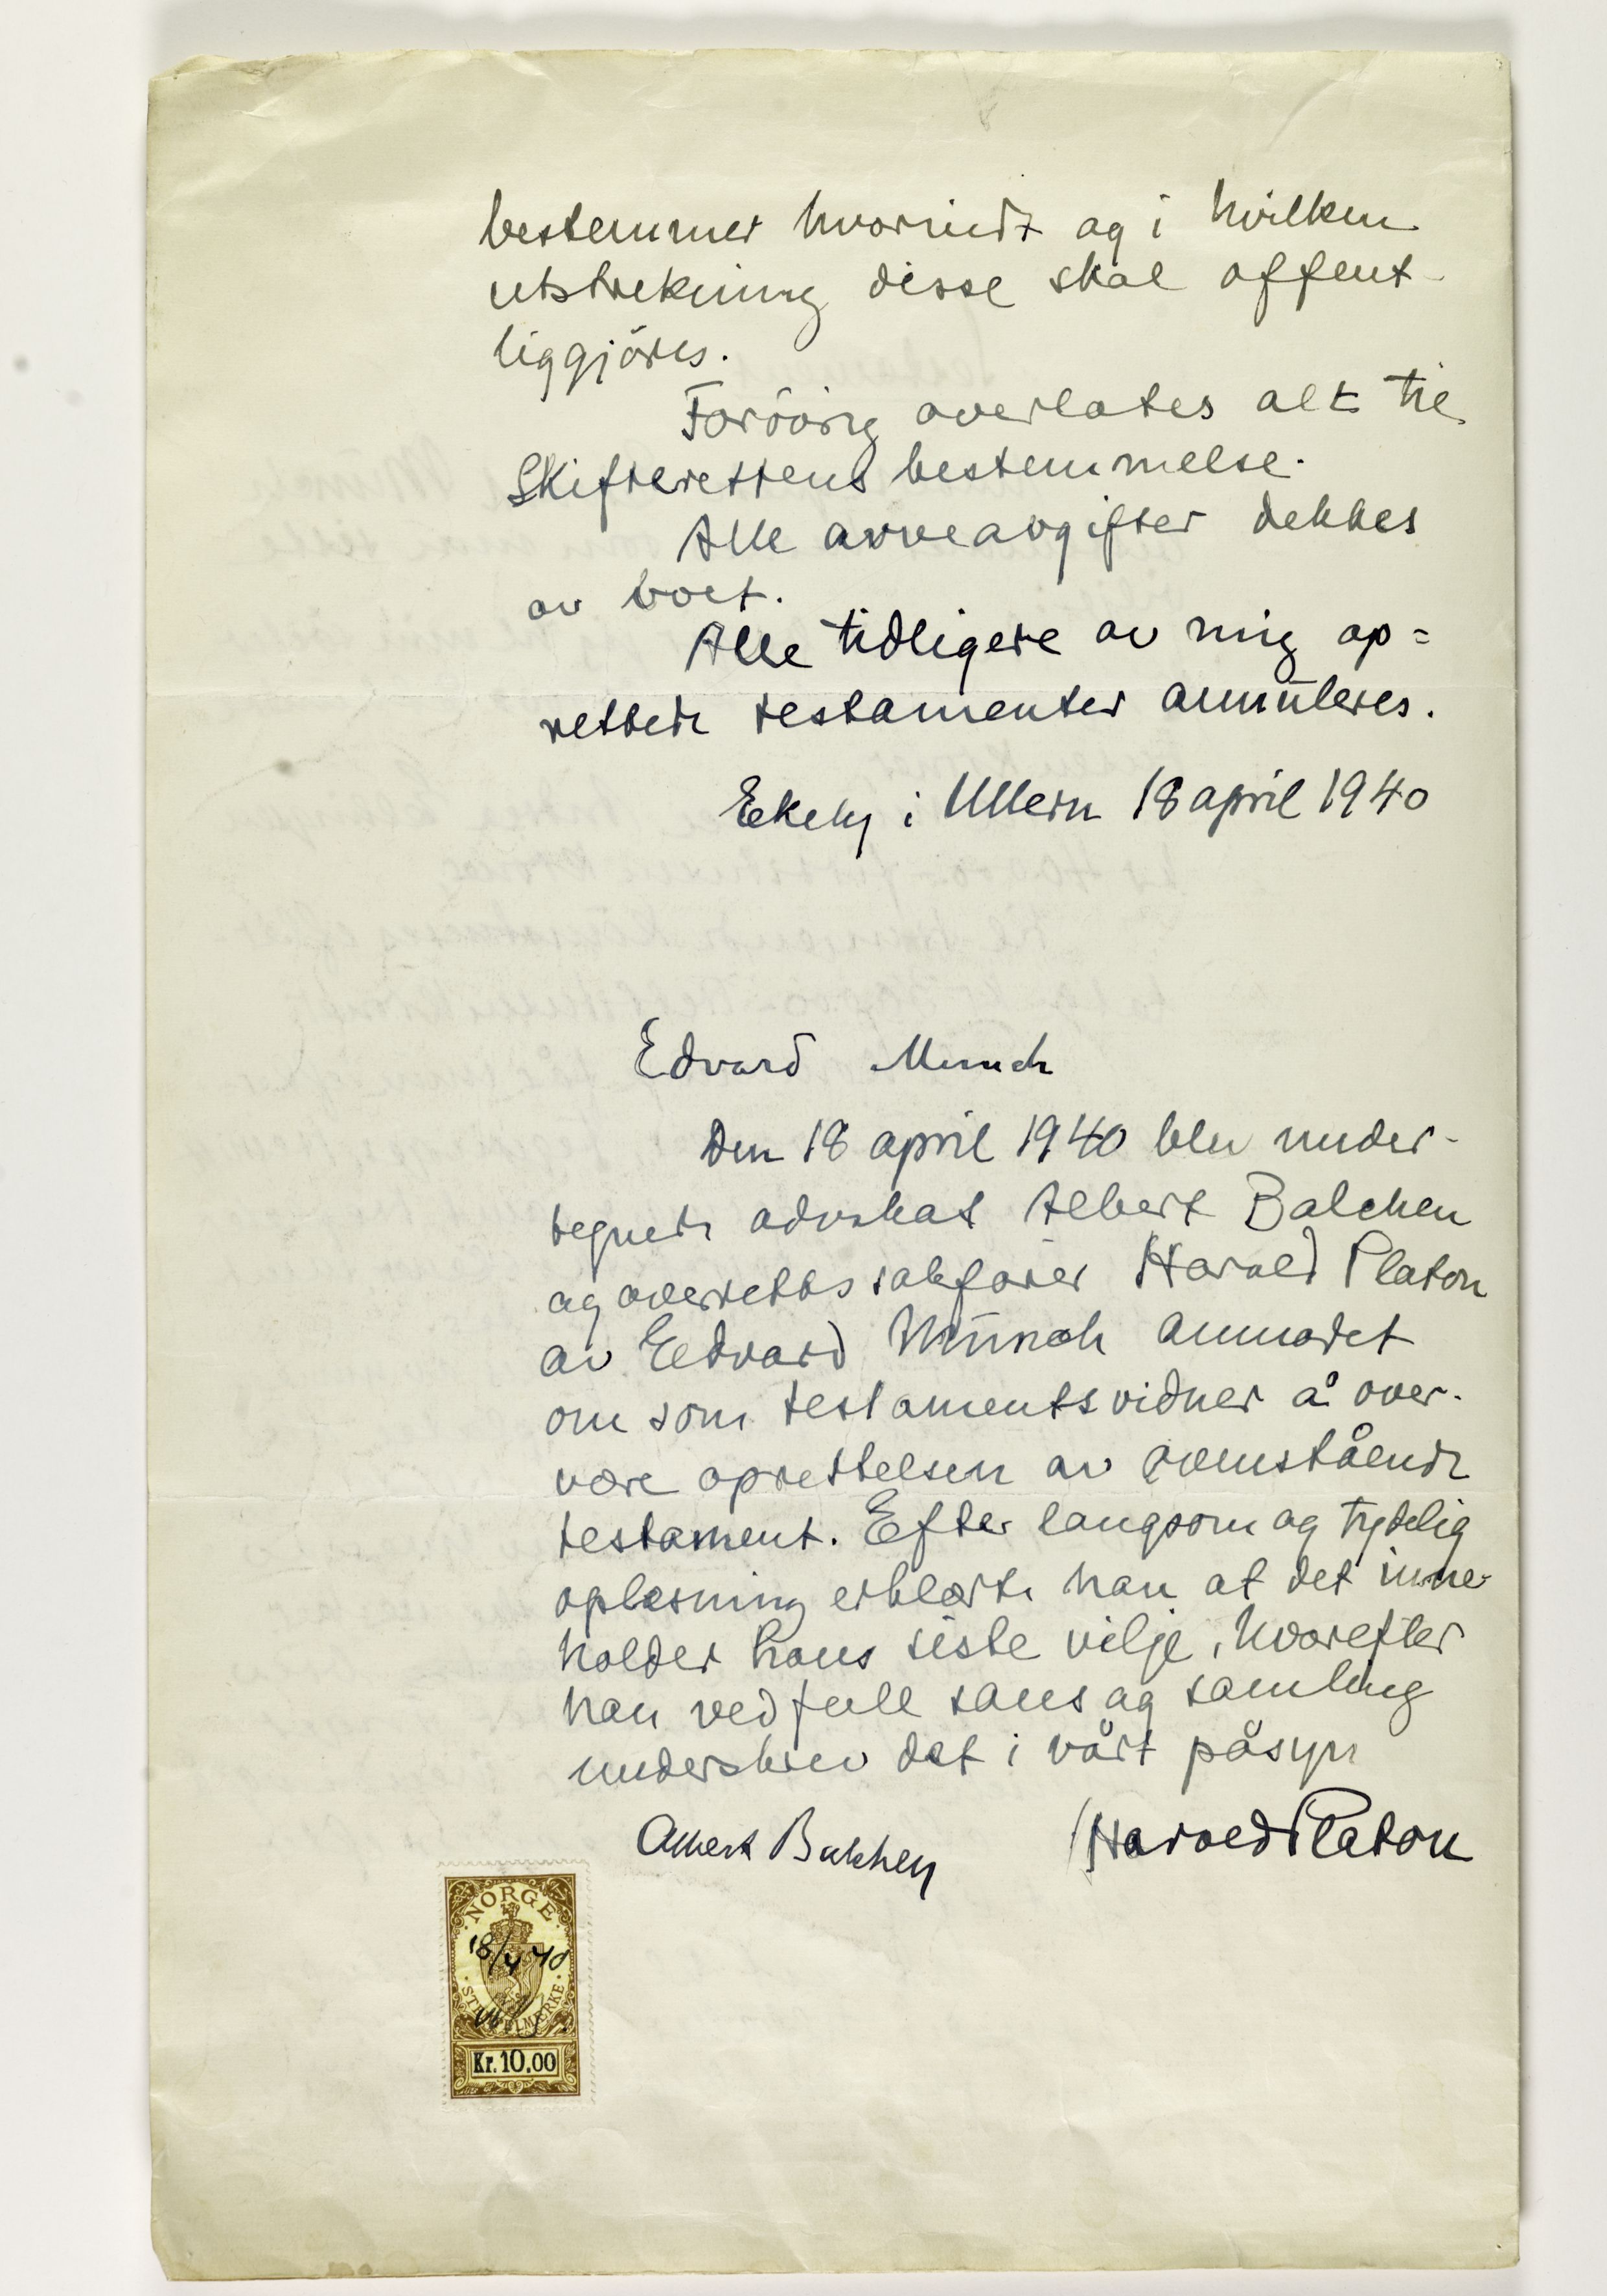 bestemmer hvorvidt og i hvilken
utstrekning disse skal offent-
liggjöres.
Forövrig overlates alt til
Skifterettens bestemmelse.
Alle arveavgifter dekkes
av boet.
Alle tidligere av mig op=
rettede testamenter annuleres.
Ekely i Ullern 18 april 1940
Edvard Munch
Den 18 april 1940 blev under-
tegnede advokat Albert Balchen
og overrettssakfører Harald Platon
av Edvard Munch anmodet
om som testamentsvidner å over-
være oprettelsen av ovenstående
testament. Efter langsom og tydelig
oplesning erklærte han at det inne-
holder hans siste vilje, hvorefter
han ved full sans og samling
underskrev det i vårt påsyn
Albert Balchen Harald Platon
NORGE
18/4 40
STEMPELMERKE
Kr. 10.00